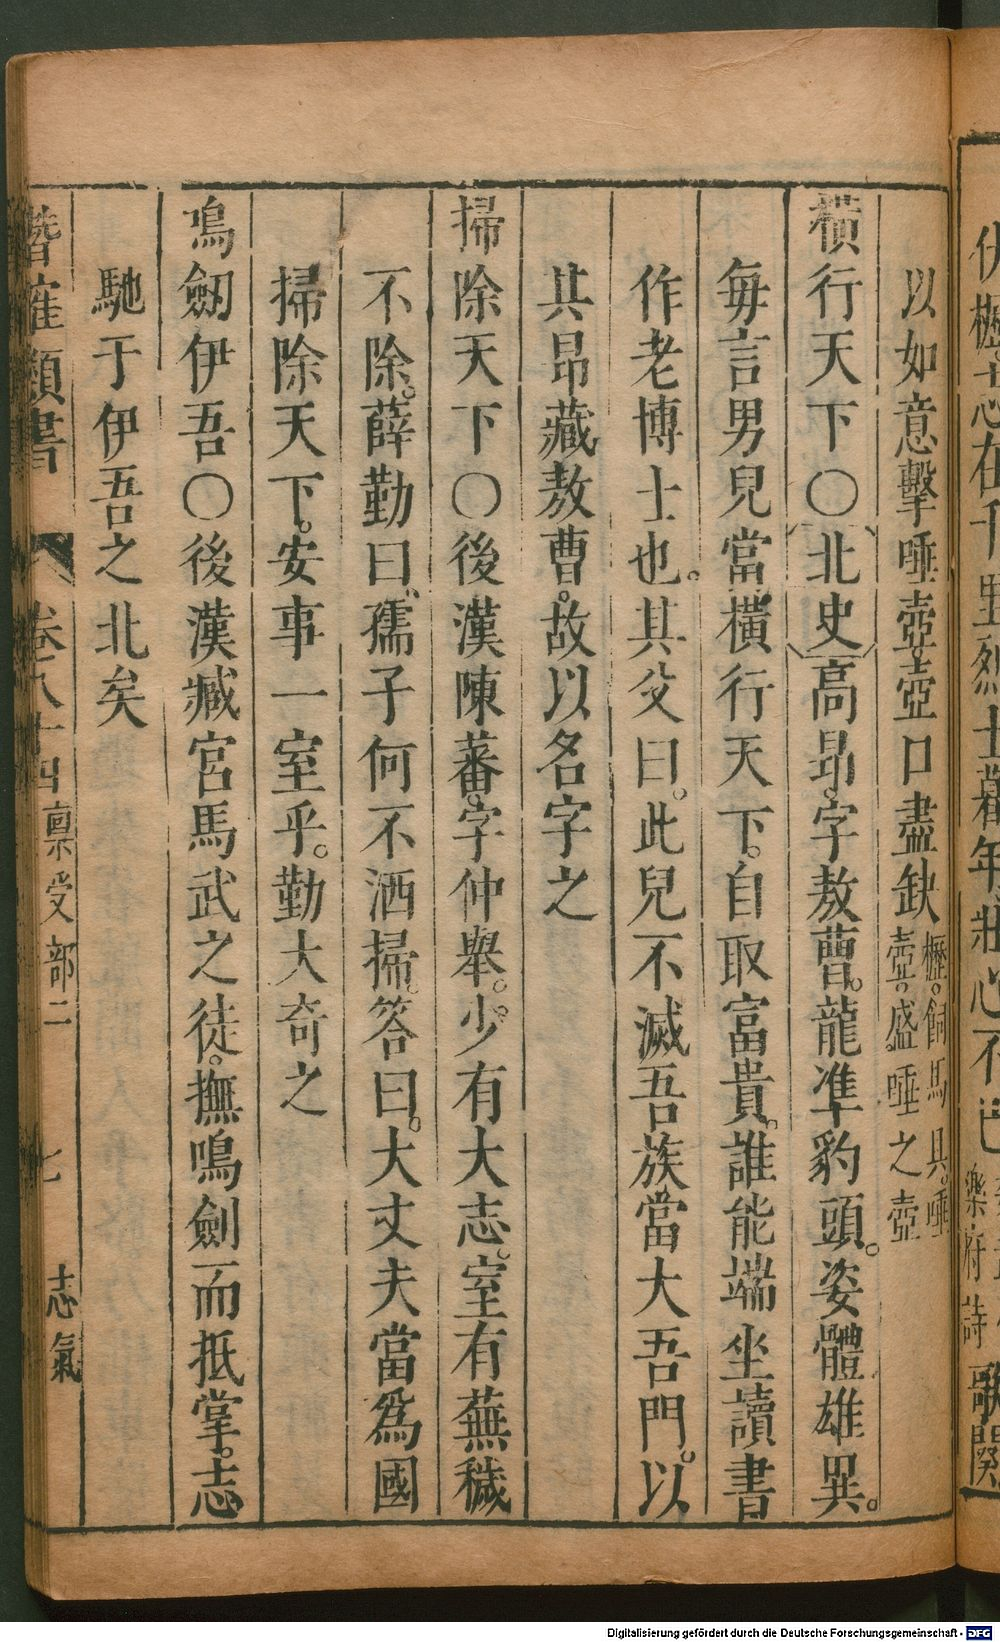 伏櫪志在千里烈士暮年壯心不已
樂府詩
歌闋
以如意擊唾壺壺口盡缺櫪飼馬具唾
壺盛唾之壺
橫行天下〇北史高昻字敖曹。龍準豹頭。姿體雄異。
每言男兒當橫行天下。自取富貴。誰能端坐讀書
作老博士也。其父曰。此兒不滅吾族當大吾門。以
其昂藏敖曹。故以名字之
掃除天下〇後漢陳蕃。字仲舉。少有大志。室有蕪穢
不除。薛勤曰孺子何不洒掃。答曰。大丈夫當爲國
掃除天下。安事一室乎。勤大奇之
鳴劒伊吾〇後漢臧宮馬武之徒。撫鳴劍而抵掌。志
馳于伊吾之北矣
潛確類書 卷八十四 稟受部二 七 志氣
Digitalisierung gefördert durch die Deutsche Forschungsgemeinschaft - DFG